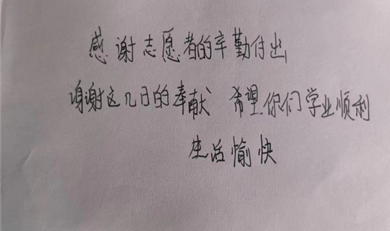 感谢志愿者的辛勤付出
谢谢这几日的奉献 希望你们学业顺利
生活愉快